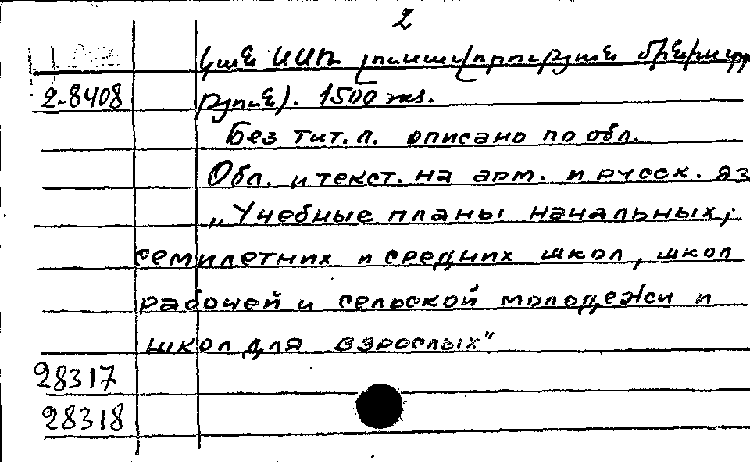 2
կան ՍՍՌ լուսավորության մինիստր
2-8408 ություն). 1500 экз.
Без тит. л. описано по обл.
Обл. и текст. на арм. и русск. яз
„Учебные планы начальных,
семилетних и средних школ, школ
рабочей и сельской молодежи и
школ для взрослых"
28317
28318